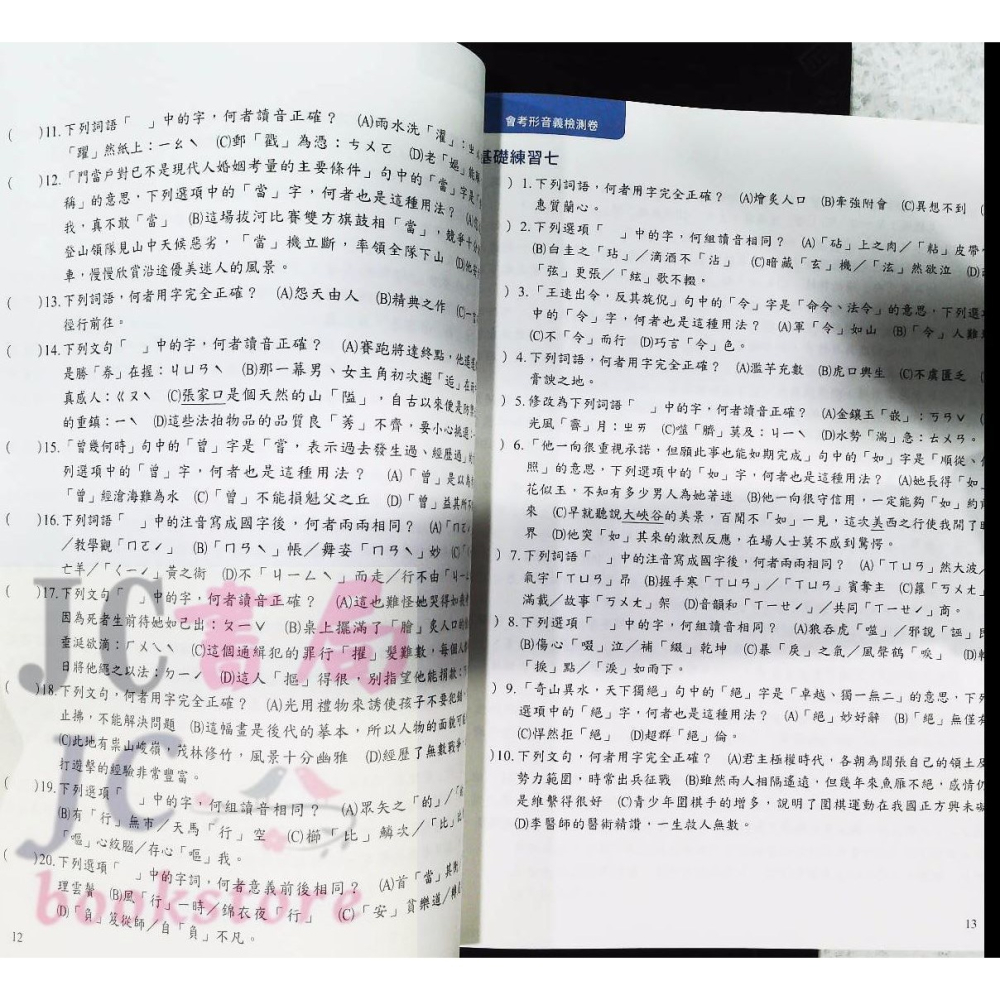 ( )11.下列詞語「　」中的字，何者讀音正確？　(A)雨水洗「濯」：ㄓ
「躍」然紙上：ㄧㄠˋ　(C)郵「戳」為憑：ㄘㄨㄛ　(D)老「嫗」能
( )12.「門當戶對已不是現代人婚姻考量的主要條件」句中的「當」字是「
稱」的意思，下列選項中的「當」字，何者也是這種用法？
我，真不敢「當」　(B)這場拔河比賽雙方旗鼓相「當」，競爭十分
登山領隊見山中天候惡劣，「當」機立斷，率領全隊下山　(D)他
車，慢慢欣賞沿途優美迷人的風景。
( )13.下列詞語，何者用字完全正確？　(A)怨天由人　(B)精典之作　(C)一言
徑行前往。
( )14.下列文句「　」中的字，何者讀音正確？　(A)賽跑將達終點，他
是勝「券」在握：ㄐㄩㄢˋ　(B)那一幕男、女主角初次邂「逅」在
真感人：ㄍㄡˋ　(C)張家口是個天然的山「隘」，自古以來便是
的重鎮：ㄧˋ　(D)這些法拍物品的品質良「莠」不齊，要小心挑選：
( )15.「曾幾何時」句中的「曾」字是「嘗，表示過去發生過、經歷過」
列選項中的「曾」字，何者也是這種用法？　(A)「曾」是以為
「曾」經滄海難為水　(C)「曾」不能損魁父之丘　(D)「曾」益其所不
( )16.下列詞語「　」中的注音寫成國字後，何者兩兩相同？　(A)「ㄇㄛˊ
／教學觀「ㄇㄛˊ」　(B)「ㄇㄢˋ」帳／舞姿「ㄇㄢˋ」妙　(C)「
亡羊／「ㄑㄧˊ」黃之術　(D)不「ㄐㄧㄥˋ」而走／行不由「ㄐㄧㄥ
( )17.下列文句「　」中的字，何者讀音正確？　(A)這也難怪她哭得如
因為死者生前待她如己出：ㄆㄧˇ　(B)桌上擺滿了「膾」炙人口的
垂涎欲滴：ㄏㄨㄟˋ　(C)這個通緝犯的罪行「擢」髮難數，每個人
日將他繩之以法：ㄉㄧˊ　(D)這人「摳」得很，別指望他能捐款：
( )18.下列文句，何者用字完全正確？　(A)光用禮物來誘使孩子不要犯錯，
止拂，不能解決問題　(B)這幅畫是後代的摹本，所以人物的面貌可
(C)此地有崇山峻嶺，茂林修竹，風景十分幽雅　(D)經歷了無數戰爭，
打遊擊的經驗非常豐富。
( )19.下列選項「　」中的字，何組讀音相同？　(A)眾矢之「的」／「
(B)有「行」無市／天馬「行」空　(C)櫛「比」鱗次／「比」
「嘔」心絞腦／存心「嘔」我。
( )20.下列選項「　」中的字詞，何者意義前後相同？　(A)首「當」其衝／
理雲鬢　(B)風「行」一時／錦衣夜「行」　(C)「安」貧樂道／轉
(D)「負」笈從師／自「負」不凡。
12
JC書局
JC
bookstore
會考形音義檢測卷
基礎練習七
) 1.下列詞語，何者用字完全正確？　(A)燴炙人口　(B)牽強附會　(C)異想不到
惠質蘭心。
) 2.下列選項「　」中的字，何組讀音相同？　(A)「砧」上之肉／「粘」皮帶
(B)白圭之「玷」／滴酒不「沾」　(C)暗藏「玄」機／「泫」然欲泣　(D)
「弦」更張／「絃」歌不輟。
) 3.「王速出令，反其旄倪」句中的「令」字是「命令、法令」的意思，下列選
中的「令」字，何者也是這種用法？　(A)軍「令」如山　(B)「令」人難
(C)不「令」而行　(D)巧言「令」色。
) 4.下列詞語，何者用字完全正確？　(A)濫竽充數　(B)虎口輿生　(C)不虞匱乏
膏腴之地。
) 5.修改為下列詞語「　」中的字，何者讀音正確？　(A)金鑲玉「嵌」：ㄎㄢˇ
光風「霽」月：ㄓㄞ　(C)噬「臍」莫及：ㄐㄧˋ　(D)水勢「湍」急：ㄊㄨㄢ。
) 6.「他一向很重視承諾，但願此事也能如期完成」句中的「如」字是「順從、
照」的意思，下列選項中的「如」字，何者也是這種用法？　(A)她長得「如
花似玉，不知有多少男人為她著迷　(B)他一向很守信用，一定能夠「如」約
來　(C)早就聽說大峽谷的美景，百聞不「如」一見，這次美西之行使我開了
界　(D)他突「如」其來的激烈反應，在場人士莫不感到驚愕。
) 7.下列詞語「　」中的注音寫成國字後，何者兩兩相同？　(A)「ㄒㄩㄢ」然大波／
氣宇「ㄒㄩㄢ」昂　(B)握手寒「ㄒㄩㄢ」／「ㄒㄩㄢ」賓奪主　(C)籮「ㄎㄨㄤ」
滿載／故事「ㄎㄨㄤ」架　(D)音韻和「ㄒㄧㄝˊ」／共同「ㄒㄧㄝˊ」商。
) 8.下列選項「　」中的字，何組讀音相同？　(A)狼吞虎「嗌」／邪說「誣」
(B)傷心「啜」泣／補「綴」乾坤　(C)暴「戾」之氣／風聲鶴「唳」　(D)
「捩」點／「淚」如雨下。
) 9.「奇山異水，天下獨絕」句中的「絕」字是「卓越、獨一無二」的意思，下列
選項中的「絕」字，何者也是這種用法？　(A)「絕」妙好辭　(B)「絕」無僅有
(C)悍然拒「絕」　(D)超群「絕」倫。
)10.下列文句，何者用字完全正確？　(A)君主極權時代，各朝為闊張自己的領土及
勢力範圍，時常出兵征戰　(B)雖然兩人相隔遙遠，但幾年來魚雁不絕，感情仍
是維繫得很好　(C)青少年圍棋手的增多，說明了圍棋運動在我國正方興未
(D)李醫師的醫術精讚，一生救人無數。
13